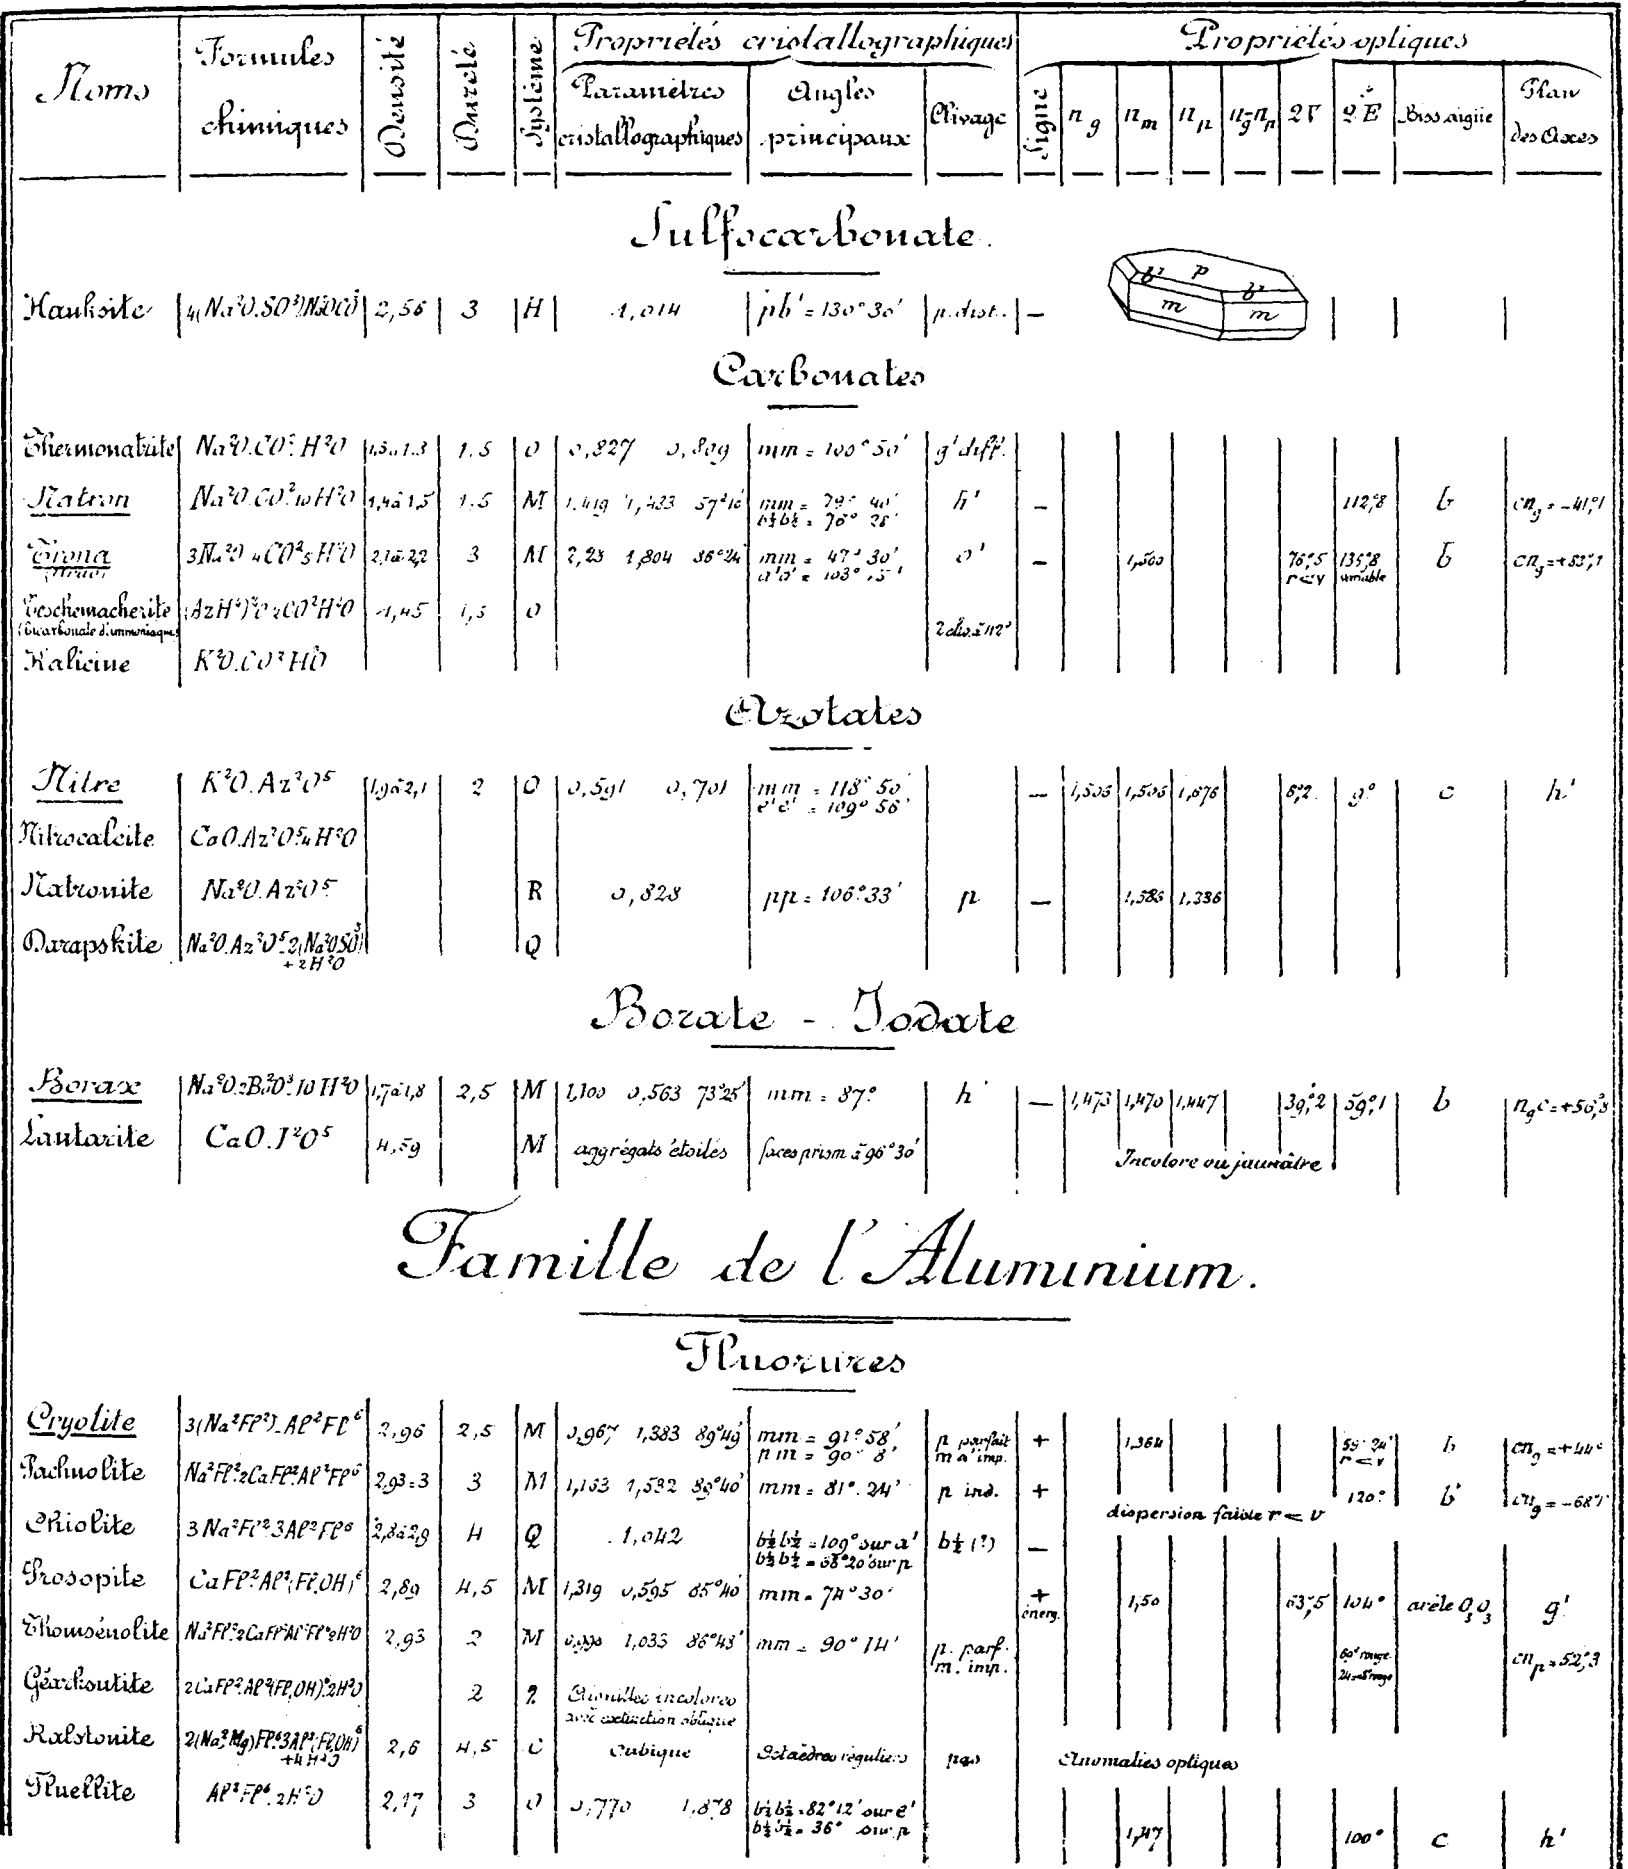 Noms Formules chimiques Densité Dureté Système Propriétés cristallographiques Propriétés optiques
Paramètres cristallographiques Angles principaux Clivage Signe n g n m n p n g - n p 2V 2E Biss. aigüe Plan des Axes
Sulfocarbonate.
Hauksite 4(Na²O.SO³)Na²OCO² 2,56 3 H 1,014 pb' = 130°30' p. dist. —
b' p b' m m
Carbonates
Thermonatrite Na²O.CO².H²O 1,5 O 0,827 0,809 mm = 100°50' g' diff. -
Natron Na²O.CO².10H²O 1,4 à 1,5 1.5 M 1.419 57° mm = 79° 40' h' - 112°,8 b cn g = -41°,1
b½b½ = 76° 28'
Trona 3Na²O 4CO² 5H²O 2,1 à 2,2 3 M 2,23 1,804 mm = 47° 30' o' - 1,500 76°,5 135°,8 b cn g = +83°,1
103° r<v
Teschemacherite (AzH⁴)²O 2CO² H²O 1,45 1,5 O
(bicarbonate d'ammoniaque) 2 cliv. à 112°
Kalicine K²O.CO² H²O
Azotates
Nitre K²O.Az²O⁵ 1,9 à 2,1 2 O 0,591 0,701 mm = 118° 50' — 1,506 1,505 6°,2 9° c h'
e'e' = 109° 56'
Nitrocalcite CaO.Az²O⁵.4H²O
Natronite Na²O.Az²O⁵ R 0,828 pp = 106°33' p — 1,586 1,336
Darapskite Na²O.Az²O⁵.2(Na²OSO³) Q
+ 2H²O
Borate - Iodate
Borax Na²O.2B²O³.10H²O 1,7 à 1,8 2,5 M 1,100 0,563 73°25' mm = 87° h' — 1,473 1,470 1,447 39°,2 59°,1 b n g c = +56°,8
Lautarite CaO.I²O⁵ 4,59 M aggrégats étoilés faces prism à 96°30' Incolore ou jaunâtre
Famille de l'Aluminium.
Fluorures
Cryolite 3(Na²Fl²).Al²Fl⁶ 2,96 2,5 M 0,967 1,383 89°49' mm = 91°58' p parfait + 1,364 59°24' b cn g = +44°
pm = 90° 8' m a' imp. r<v
Pachnolite Na²Fl².2CaFl².Al²Fl⁶ 2,93=3 3 M 1,163 1,532 89°40' mm = 81°.24' p ind. + 120° b cn g = -68°
dispersion faible r < v
Chiolite 3Na²Fl².3Al²Fl⁶ 2,8 à 2,9 4 Q 1,042 b½b½ = 109° sur a' b½(?) —
b½b½ = 68°20' sur p
Prosopite CaFl².Al²(Fl,OH)⁶ 2,89 4,5 M 1,319 0,595 85°40' mm = 74°30' + énerg. 1,50 63°,5 104° arête g'
Thomsénolite Na²Fl².2CaFl².Al²Fl⁶.2H²O 2,93 2 M 1,033 mm = 90°14' p. parf. m. imp. rouge cn p = 52°,3
Géarksutite 2CaFl².Al²(Fl,OH)⁶.2H²O 2 ? Aiguilles incolores
avec extinction oblique
Ralstonite 2(Na²,Mg)Fl².3Al²(Fl,OH)⁶ 2,6 4,5 C Cubique Octaèdres réguliers pas Anomalies optiques
+4H²O
Fluellite Al²Fl⁶.2H²O 2,17 3 O 0,770 1,878 b½b½ = 82°12' sur e' 1,47 100° c h'
b½b½ = 36° sur p